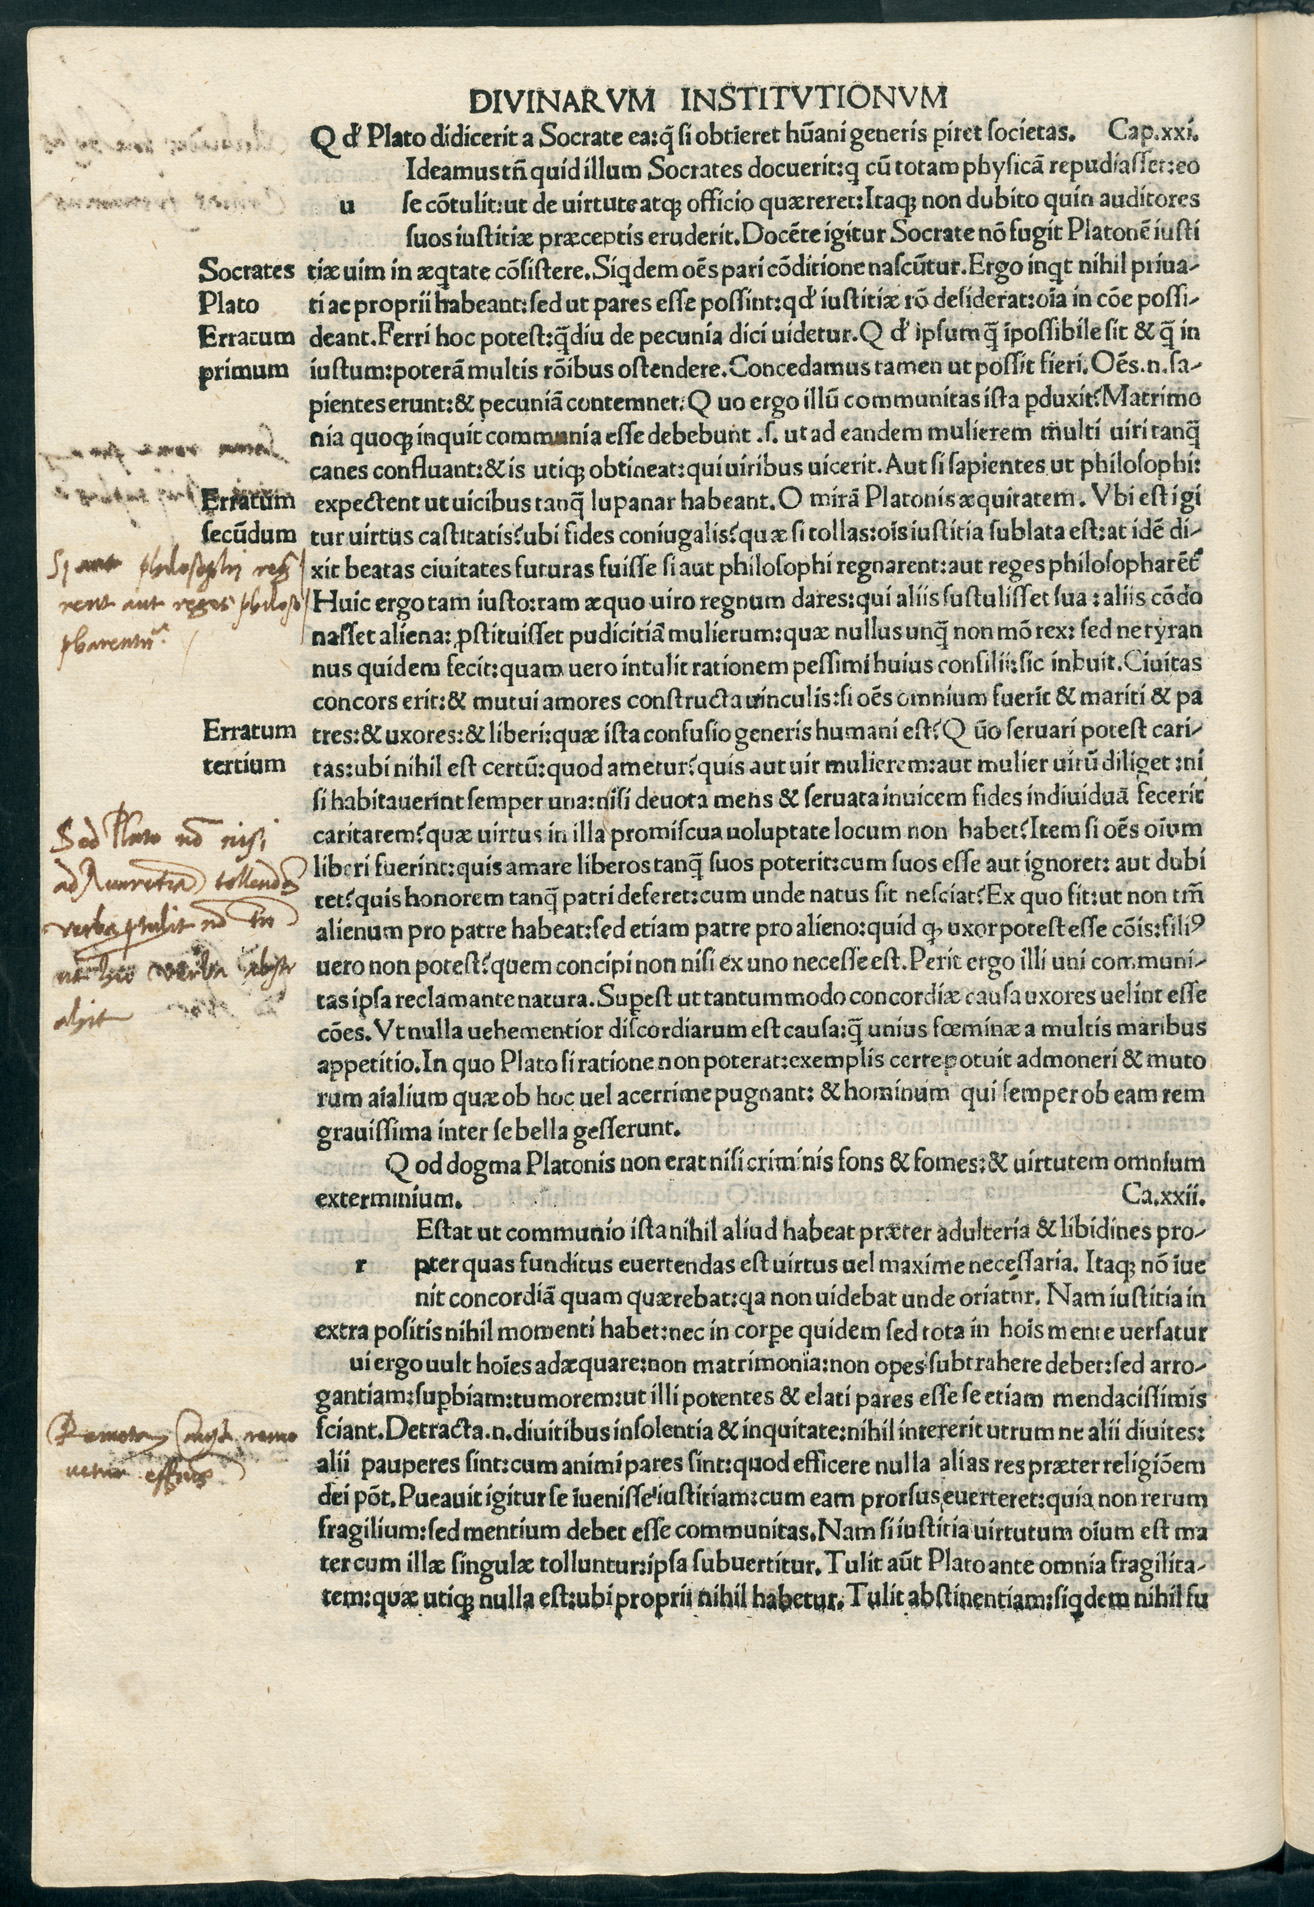 DIVINARVM INSTITVTIONVM
Q d' Plato didicerit a Socrate ea:q̄ si obtieret hūani generis piret societas. Cap.xxi.
Ideamus tñ quid illum Socrates docuerit:q cū totam physicā repudiasset:eo
u se cōtulit:ut de uirtute atqꝫ officio quæreret:Itaqꝫ non dubito quin auditores
suos iustitiæ præceptis eruderit.Docēte igitur Socrate nō fugit Platonē iusti
Socrates tiæ uim in æqtate cōsistere.Siqdem oēs pari cōditione nascūtur.Ergo inqt nihil priua-
Plato ti ac proprii habeant:sed ut pares esse possint:qd' iustitiæ rō desiderat:oīa in cōe possi-
Erratum deant.Ferri hoc potest:q̄diu de pecunia dici uidetur.Q d' ipsum q̄ īpossibile sit & q̄ in
primum iustum:poterā multis rōibus ostendere.Concedamus tamen ut possit fieri.Oēs.n.sa-
pientes erunt:& pecuniā contemnet.Q uo ergo illū communitas ista pduxit?Matrimo
nia quoqꝫ inquit communia esse debebunt .s. ut ad eandem mulierem multi uiri tanq̄
canes confluant:& is utiqꝫ obtineat:qui uiribus uicerit.Aut si sapientes ut philosophi:
Erratum expectent ut uicibus tanq̄ lupanar habeant.O mirā Platonis æquitatem. Vbi est igi
secūdum tur uirtus castitatis?ubi fides coniugalis?quæ si tollas:oīs iustitia sublata est:at idē di-
Si aut philosophi reg xit beatas ciuitates futuras fuisse si aut philosophi regnarent:aut reges philosopharēt
rent aut reges philoso Huic ergo tam iusto:tam æquo uiro regnum dares:qui aliis sustulisset sua:aliis cōdo
pharentur nasset aliena:pstituisset pudicitiā mulierum:quæ nullus unq̄ non mō rex: sed ne tyran
nus quidem fecit:quam uero intulit rationem pessimi huius consilii:sic inbuit.Ciuitas
concors erit:& mutui amores constricta uinculis:si oēs omnium fuerit & mariti & pa
Erratum tres:& uxores:& liberi:quæ ista confusio generis humani est?Q ūo seruari potest cari-
tertium tas:ubi nihil est certū:quod ametur?quis aut uir mulierem:aut mulier uirū diliget:ni
si habitauerint semper una:nisi deuota mens & seruata inuicem fides indiuiduā fecerit
Sed Plato nō nisi caritatem?quæ uirtus in illa promiscua uoluptate locum non habet?Item si oēs oīum
liberi fuerint:quis amare liberos tanq̄ suos poterit:cum suos esse aut ignoret: aut dubi
tet?quis honorem tanq̄ patri deferet:cum unde natus sit nesciat?Ex quo fit:ut non tm̄
alienum pro patre habeat:sed etiam patre pro alieno:quid qꝫ uxor potest esse cōis:filiꝰ
uero non potest?quem concipi non nisi ex uno necesse est.Perit ergo illi uni communi-
tas ipsa reclamante natura.Supest ut tantummodo concordiæ causa uxores uelint esse
cōes.Vt nulla uehementior discordiarum est causa:q̄ unius fœminæ a multis maribus
appetitio.In quo Plato si ratione non poterat:exemplis certe potuit admoneri & muto
rum aīalium quæ ob hoc uel acerrime pugnant: & hominum qui semper ob eam rem
grauissima inter se bella gesserunt.
Q od dogma Platonis non erat nisi criminis fons & fomes:& uirtutem omnium
exterminium. Ca.xxii.
Estat ut communio ista nihil aliud habeat præter adulteria & libidines pro-
r pter quas funditus euertendas est uirtus uel maxime necessaria. Itaqꝫ nō īue
nit concordiā quam quærebat:qa non uidebat unde oriatur. Nam iustitia in
extra positis nihil momenti habet:nec in corpe quidem sed tota in hoīs mente uersatur
ui ergo uult hoīes adæquare:non matrimonia:non opes subtrahere debet:sed arro-
gantiam:supbiam:tumorem:ut illi potentes & elati pares esse se etiam mendacissimis
sciant.Detracta.n.diuitibus insolentia & inquitate:nihil intererit utrum ne alii diuites:
alii pauperes sint:cum animi pares sint:quod efficere nulla alias res præter religiōem
dei pōt.Pueauit igitur se īuenisse iustitiam:cum eam prorsus euerteret:quia non rerum
fragilium:sed mentium debet esse communitas.Nam si iustitia uirtutum oīum est ma
ter cum illæ singulæ tolluntur:ipsa subuertitur. Tulit aūt Plato ante omnia fragilita-
tem:quæ utiqꝫ nulla est:ubi proprii nihil habetur.Tulit abstinentiam:siqdem nihil fu